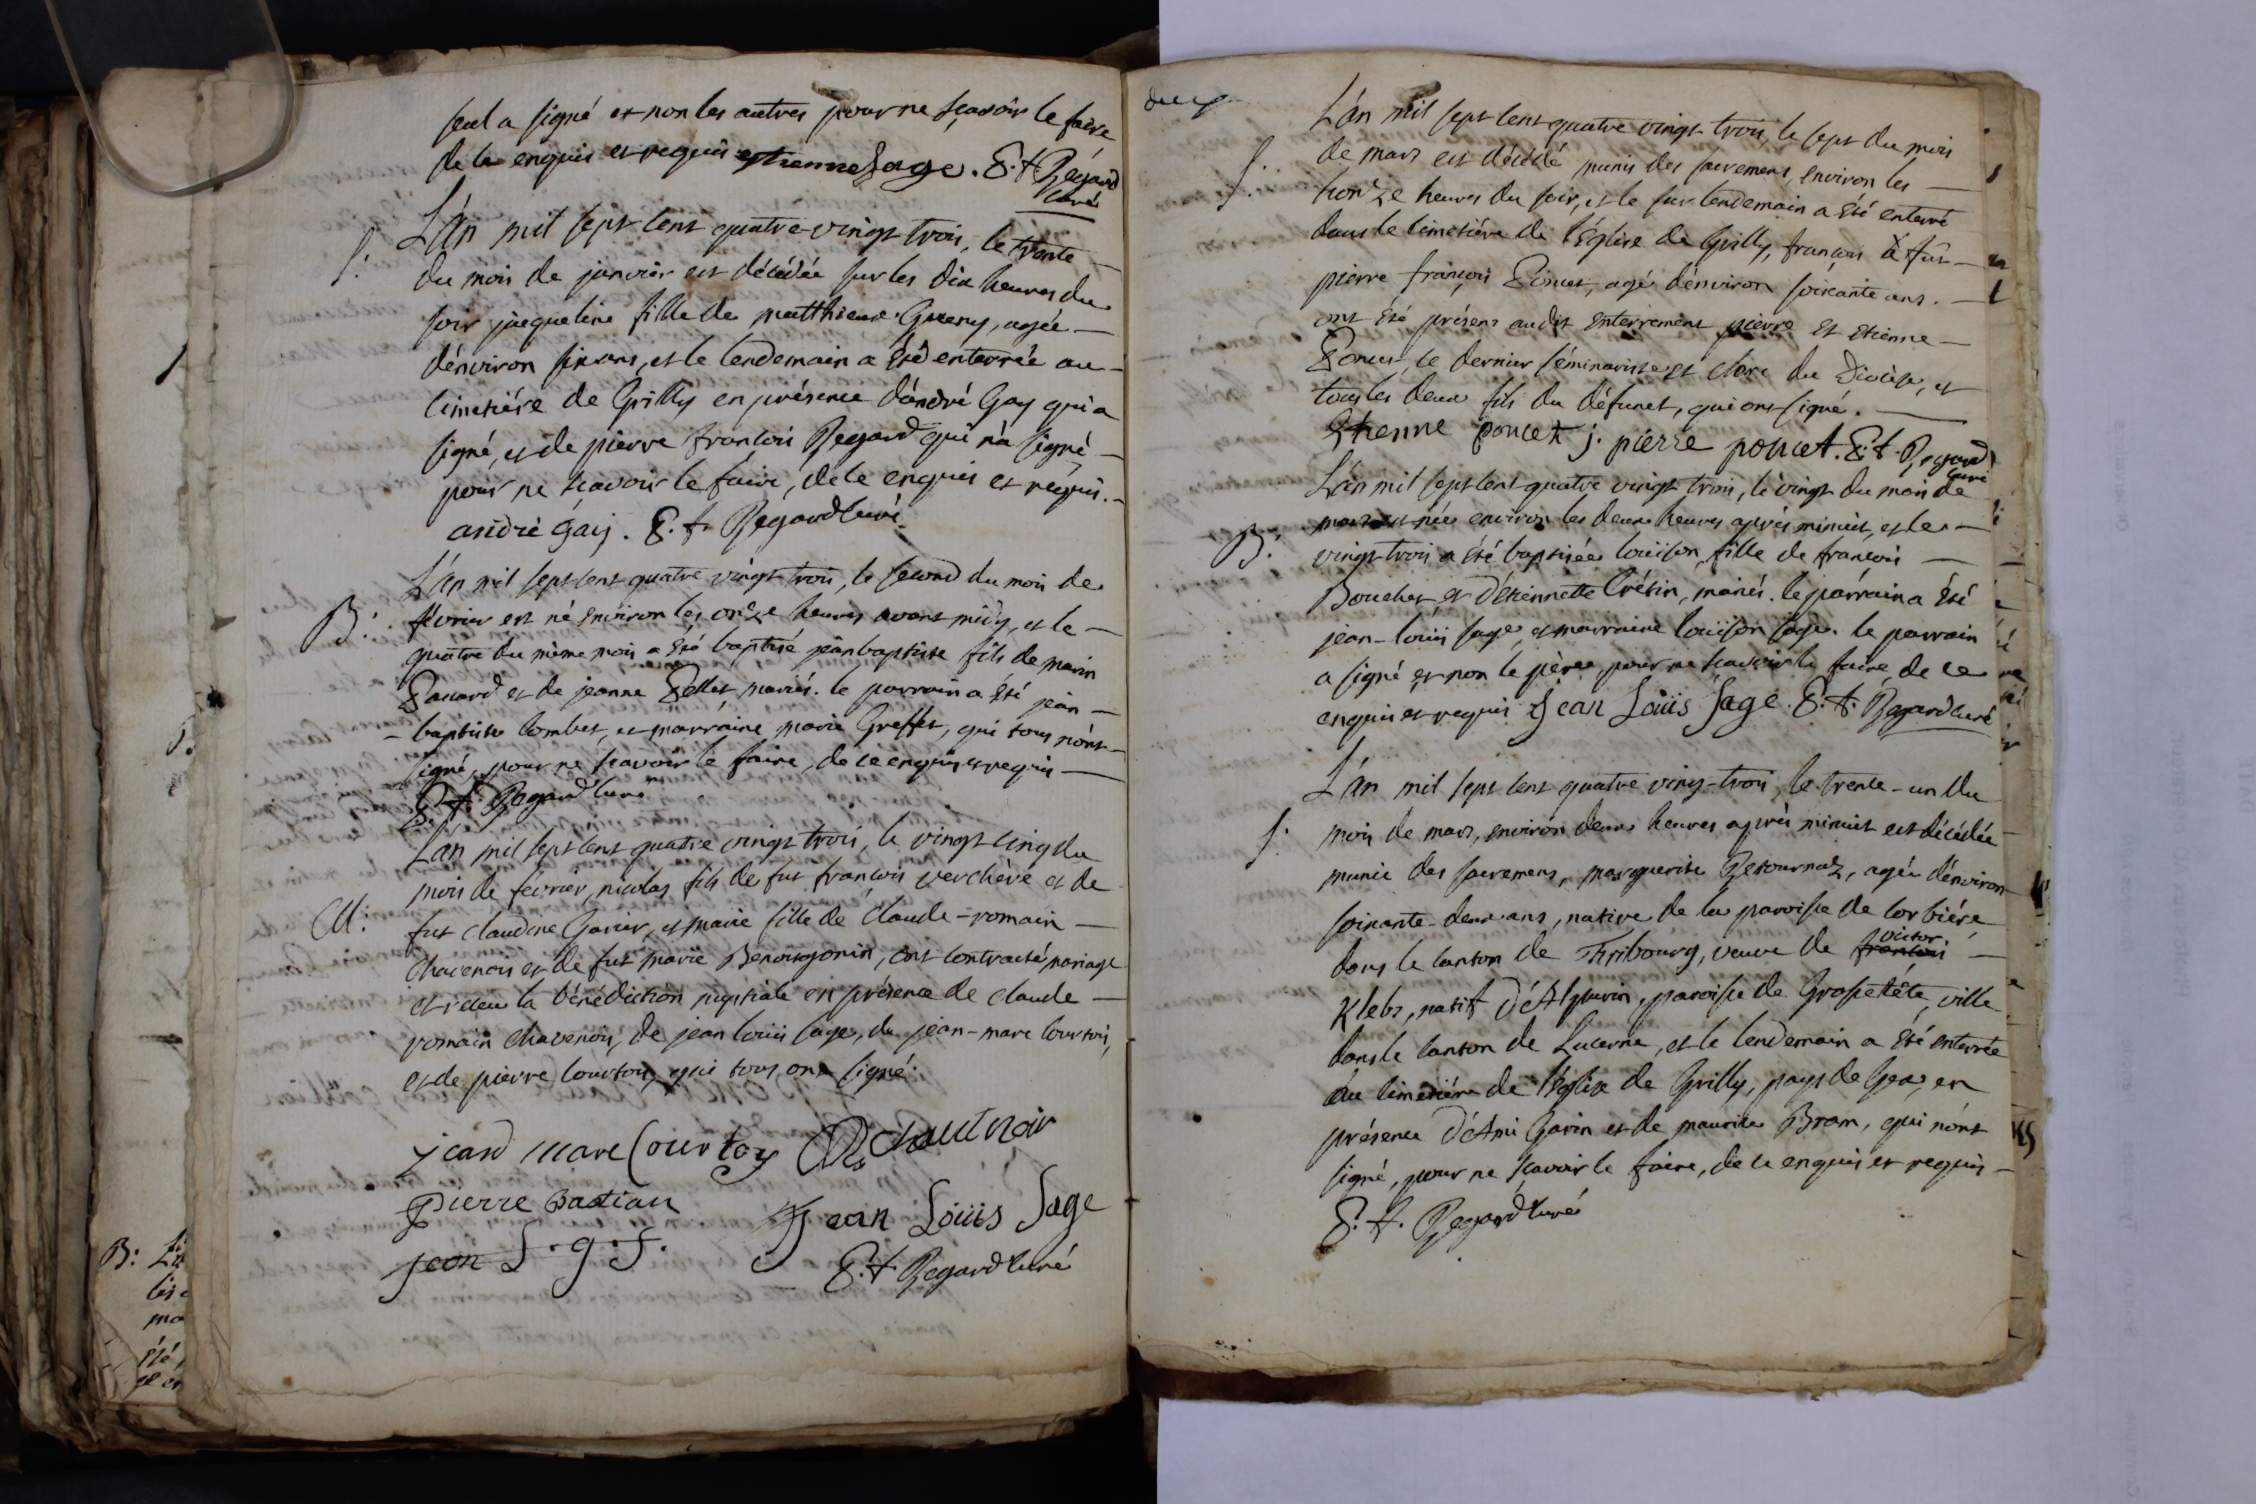 seul a signé et non les autres pour ne sçavoir le faire
de ce enquis et requis estienne Sage. P. f. Regard
curé
L'án mil sept cent quatre-vingt trois, le trente
S:
du mois de janvier est décédée sur les dix heures du
soir jaqueline fille de matthieu Gueny, agée
dénviron six ans, et le lendemain a été enterrée au
cimetiére de Grilly en présence dándré Gay qui a
signé, et de pierre francois Regard qui ná signé
pour ne scavoir le faire, de ce enquis et requis.
andrè Gaij. P. f. Regard curé
L'án mil sept cent quatre vingt trois, le second du mois de
B:
février est né environ les onze heures avant midy, et le
quatre du même mois a été baptisé jean baptiste fils de marin
Panard et de jeanne Pellet mariés. le parrain a été jean
baptiste Combet, et marraine marie Greffet, qui tous nónt
signé, pour ne scavoir le faire, de ce enquis et requis
P. f. Regard curé
L'án mil sept cent quatre vingt trois, le vingt cinq du
mois de février, nicolas fils de fut francois verchère et de
M:
fut claudine Gavier, et marie fille de Claude-romain
Chavenois et de fut marie Benoitgonin, ont contracté mariage
et reçu la bénédiction nuptiale en présence de claude
romain chavenois, de jean louis sage, de jean-marc Courtois,
et de pierre Courtois, qui tous ont signé.
jean marc Courtoy CR Chautnoir
pierre Bastian
Jean Loüis Sage
jean S. g. f.
P. f. Regard curé
L'án mil sept cent quatre vingt trois, le sept du mois
S.
de mars est décédé munis des sacremens, environ les
honze heures du soir, et le sur lendemain a été enterré
dans le cimetiére de l'église de Grilly, francois à fût
pierre françois Poncet, agé dénviron soixante ans.
ont été présens audit enterrement pierre et etienne
Poncet, ce dernier séminariste et clerc du Diocèse, et
tous les deux fils du défunct, qui ont signé.
Etienne poncet j. pierre poncet. P. f. Regard
curé
L'án mil sept cent quatre vingt trois, le vingt du mois de
B:
mars est née environ les deux heures après minuit, et le
vingt trois a été baptisée loüison, fille de francois
Bouchet et détiennette Crétin, mariés. le parrain a été
jean-loüis sage, et marraine loüison sage. le parrain
a signé et non le père pour ne scavoir le faire, de ce
enquis et requis Jean Loüis Sage. P. f. Regard curé
L'án mil sept cent quatre ving-trois, le trente-un du
S.
mois de mars, environ deux heures après minuit est décédée
munie des sacremens, marguerite Retournat, agée dénviron
soixante-deux ans, native de la paroisse de Corbiére
victor
dans le canton de Fribourg, veuve de francois
Klebs, natif d'Alpurin, paroisse de Grossetéte, ville
dans le canton de Lucerne, et le lendemain a été enterrée
au cimetiére de l'église de Grilly, pays de Gex, en
présence d'Ami Gavin et de maurice Bram, qui nónt
signé, pour ne scavoir le faire, de ce enquis et requis
P. f. Regard curé